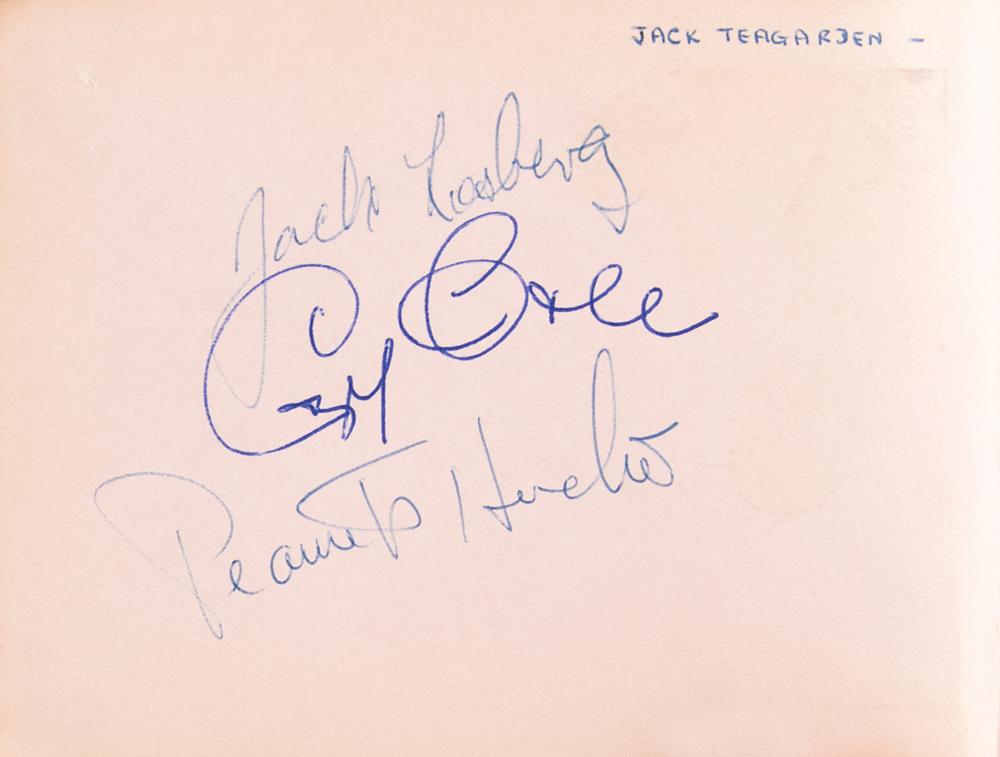 JACK TEAGARDEN –
Jack Lesberg
Cozy Cole
Peanuts Hucko